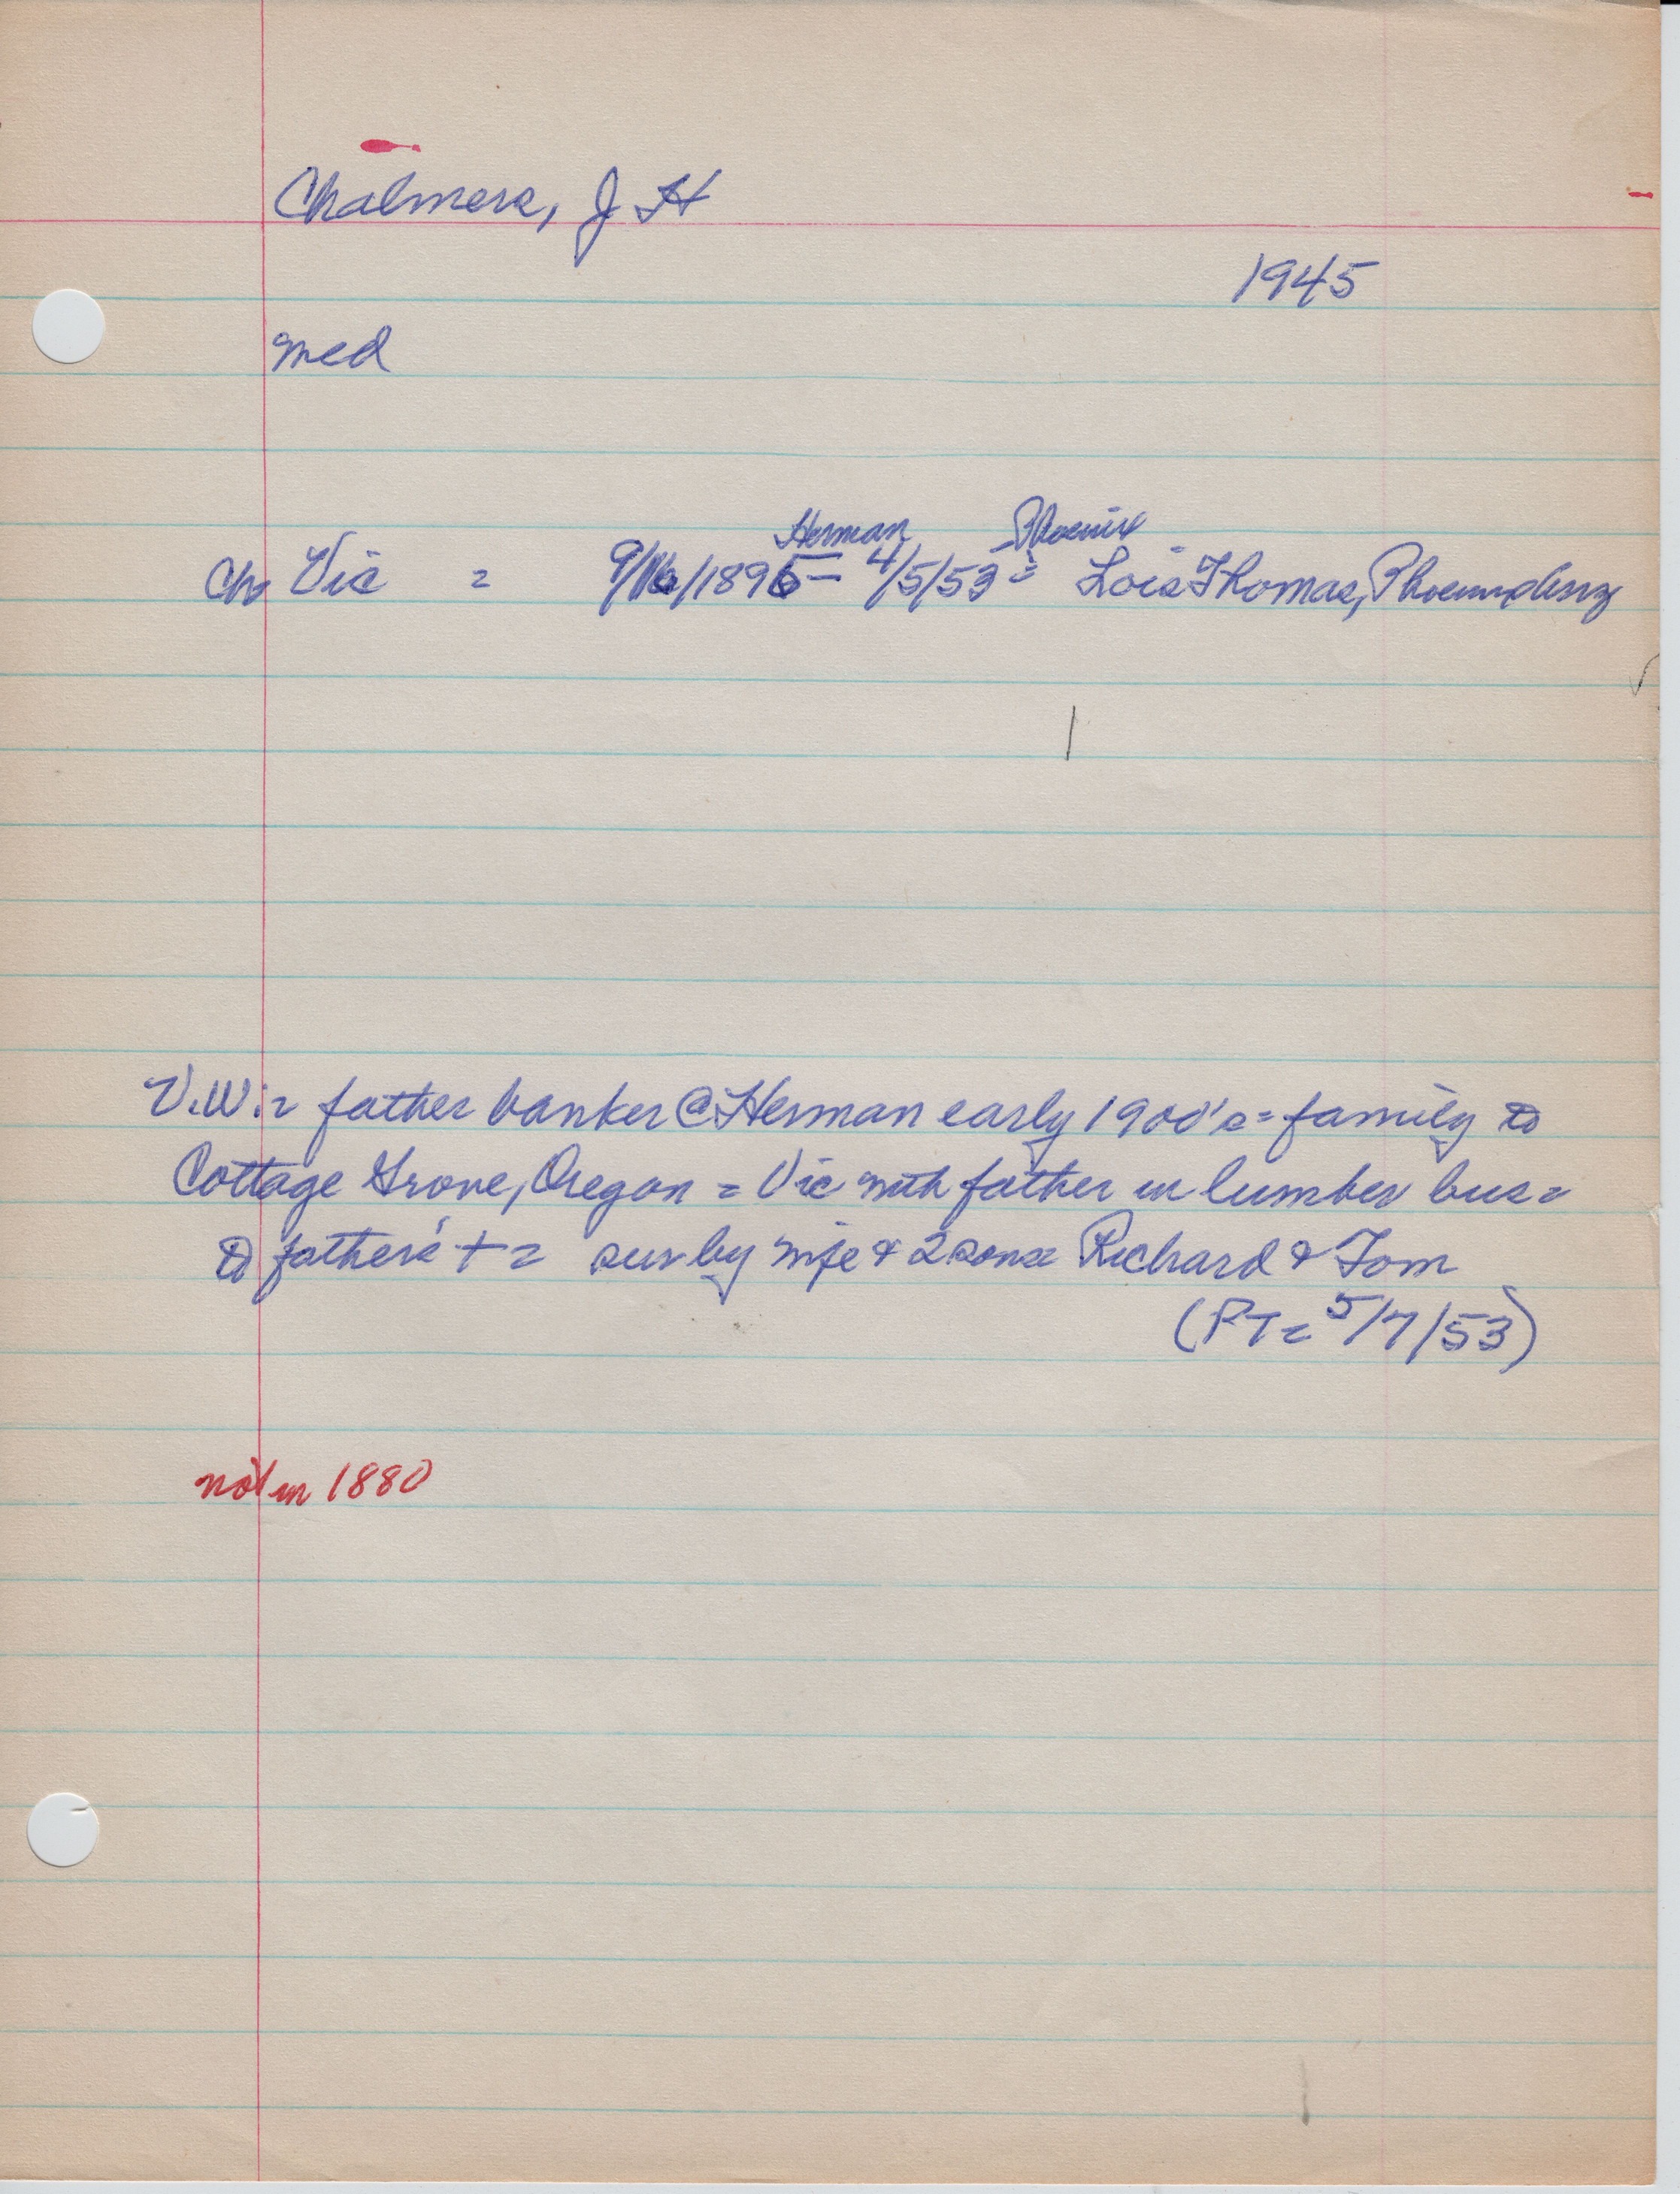 Chalmers, J H
1945
med
Herman Phoenix
Ch Vic = 9/16/1896 - 4/5/53 = Lois Thomas,
V.W. = father banker @ Herman early 1900's = family to
Cottage Grove, Oregon = Vic with father in lumber bus =
to father's + = sur by wife & 2 sons = Richard & Tom
(PT = 5/7/53)
not in 1880